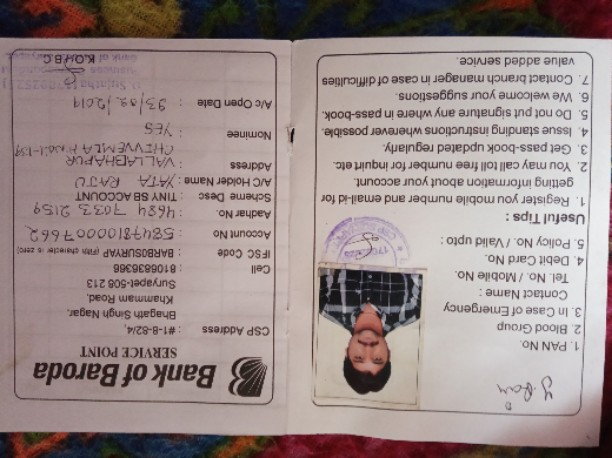 Bank of Baroda
SERVICE POINT
CSP Address : #1-8-82/4,
Bhagath Singh Nagar,
Khammam Road,
Suryapet-508 213
Cell : 8106836366
IFSC Code : BARB0SURYAP (Fifth character is zero)
Account No. : 58478100007662
Aadhar No. : 4684 7033 2159
Scheme Desc : TINY SB ACCOUNT
A/C Holder Name : YATA RAJU
Address : VALLABHAPUR
CHIVVEMLA
Nominee : YES
A/c Open Date
K.O.H.B.C
1. PAN No.
2. Blood Group
3. In Case of Emergency
Contact Name :
Tel. No. / Mobile No.
4. Debit Card No.
5. Policy No. / Valid upto :
Useful Tips :
1. Register you mobile number and email-id for
getting information about your account.
2. You may call toll free number for inquirt etc.
3. Get pass-book updated regularly.
4. Issue standing instructions wherever possible.
5. Do not put signature any where in pass-book.
6. We welcome your suggestions.
7. Contact branch manager in case of difficulties
value added service.